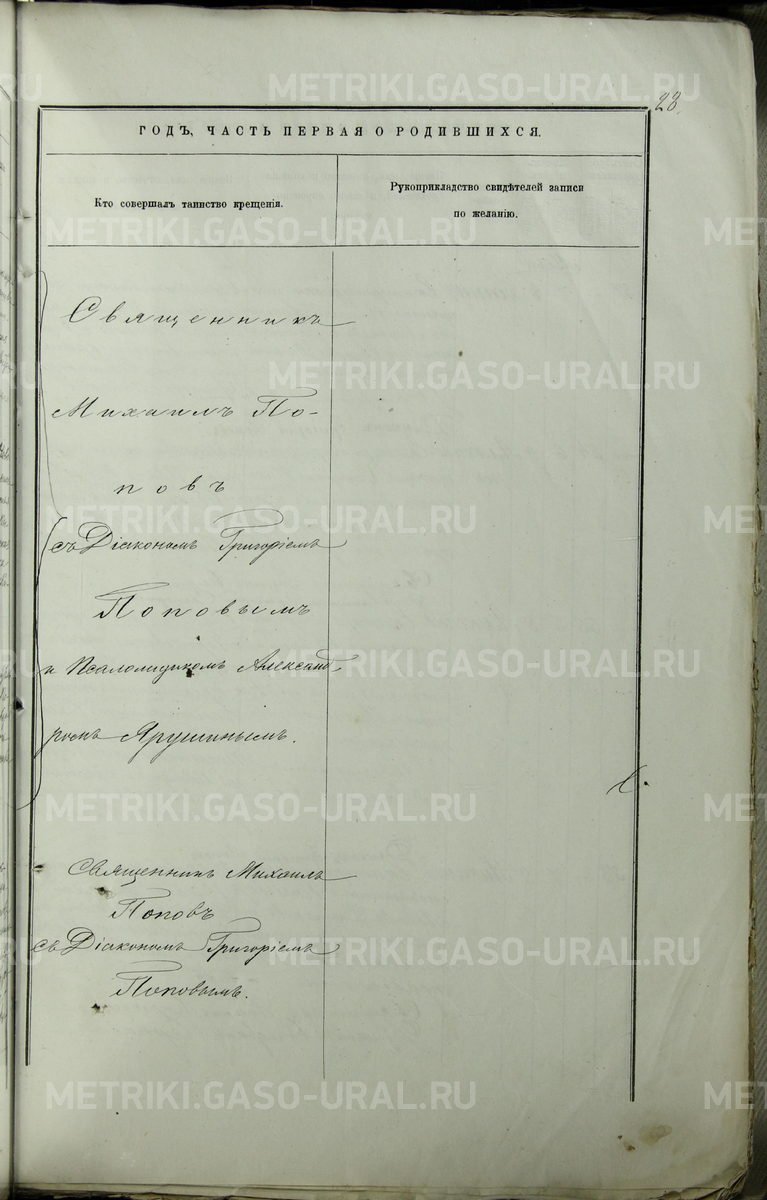 28.
ГОДЪ, ЧАСТЬ ПЕРВАЯ О РОДИВШИХСЯ.
Кто совершалъ таинство крещенія.
Рукоприкладство свидѣтелей записи
по желанію.
Священникъ
Михаилъ По-
повъ
съ Діакономъ Григоріемъ
Поповымъ
и Псаломщикомъ Александ-
ромъ Ярушинымъ.
Священникъ Михаилъ
Поповъ
съ Діакономъ Григоріемъ
Поповымъ.
METRIKI.GASO-URAL.RU
METRIKI.GASO-URAL.RU
METRIKI.GASO-URAL.RU
METRIKI.GASO-URAL.RU
METRIKI.GASO-URAL.RU
METRIKI.GASO-URAL.RU
METRIKI.GASO-URAL.RU
METRIKI.GASO-URAL.RU